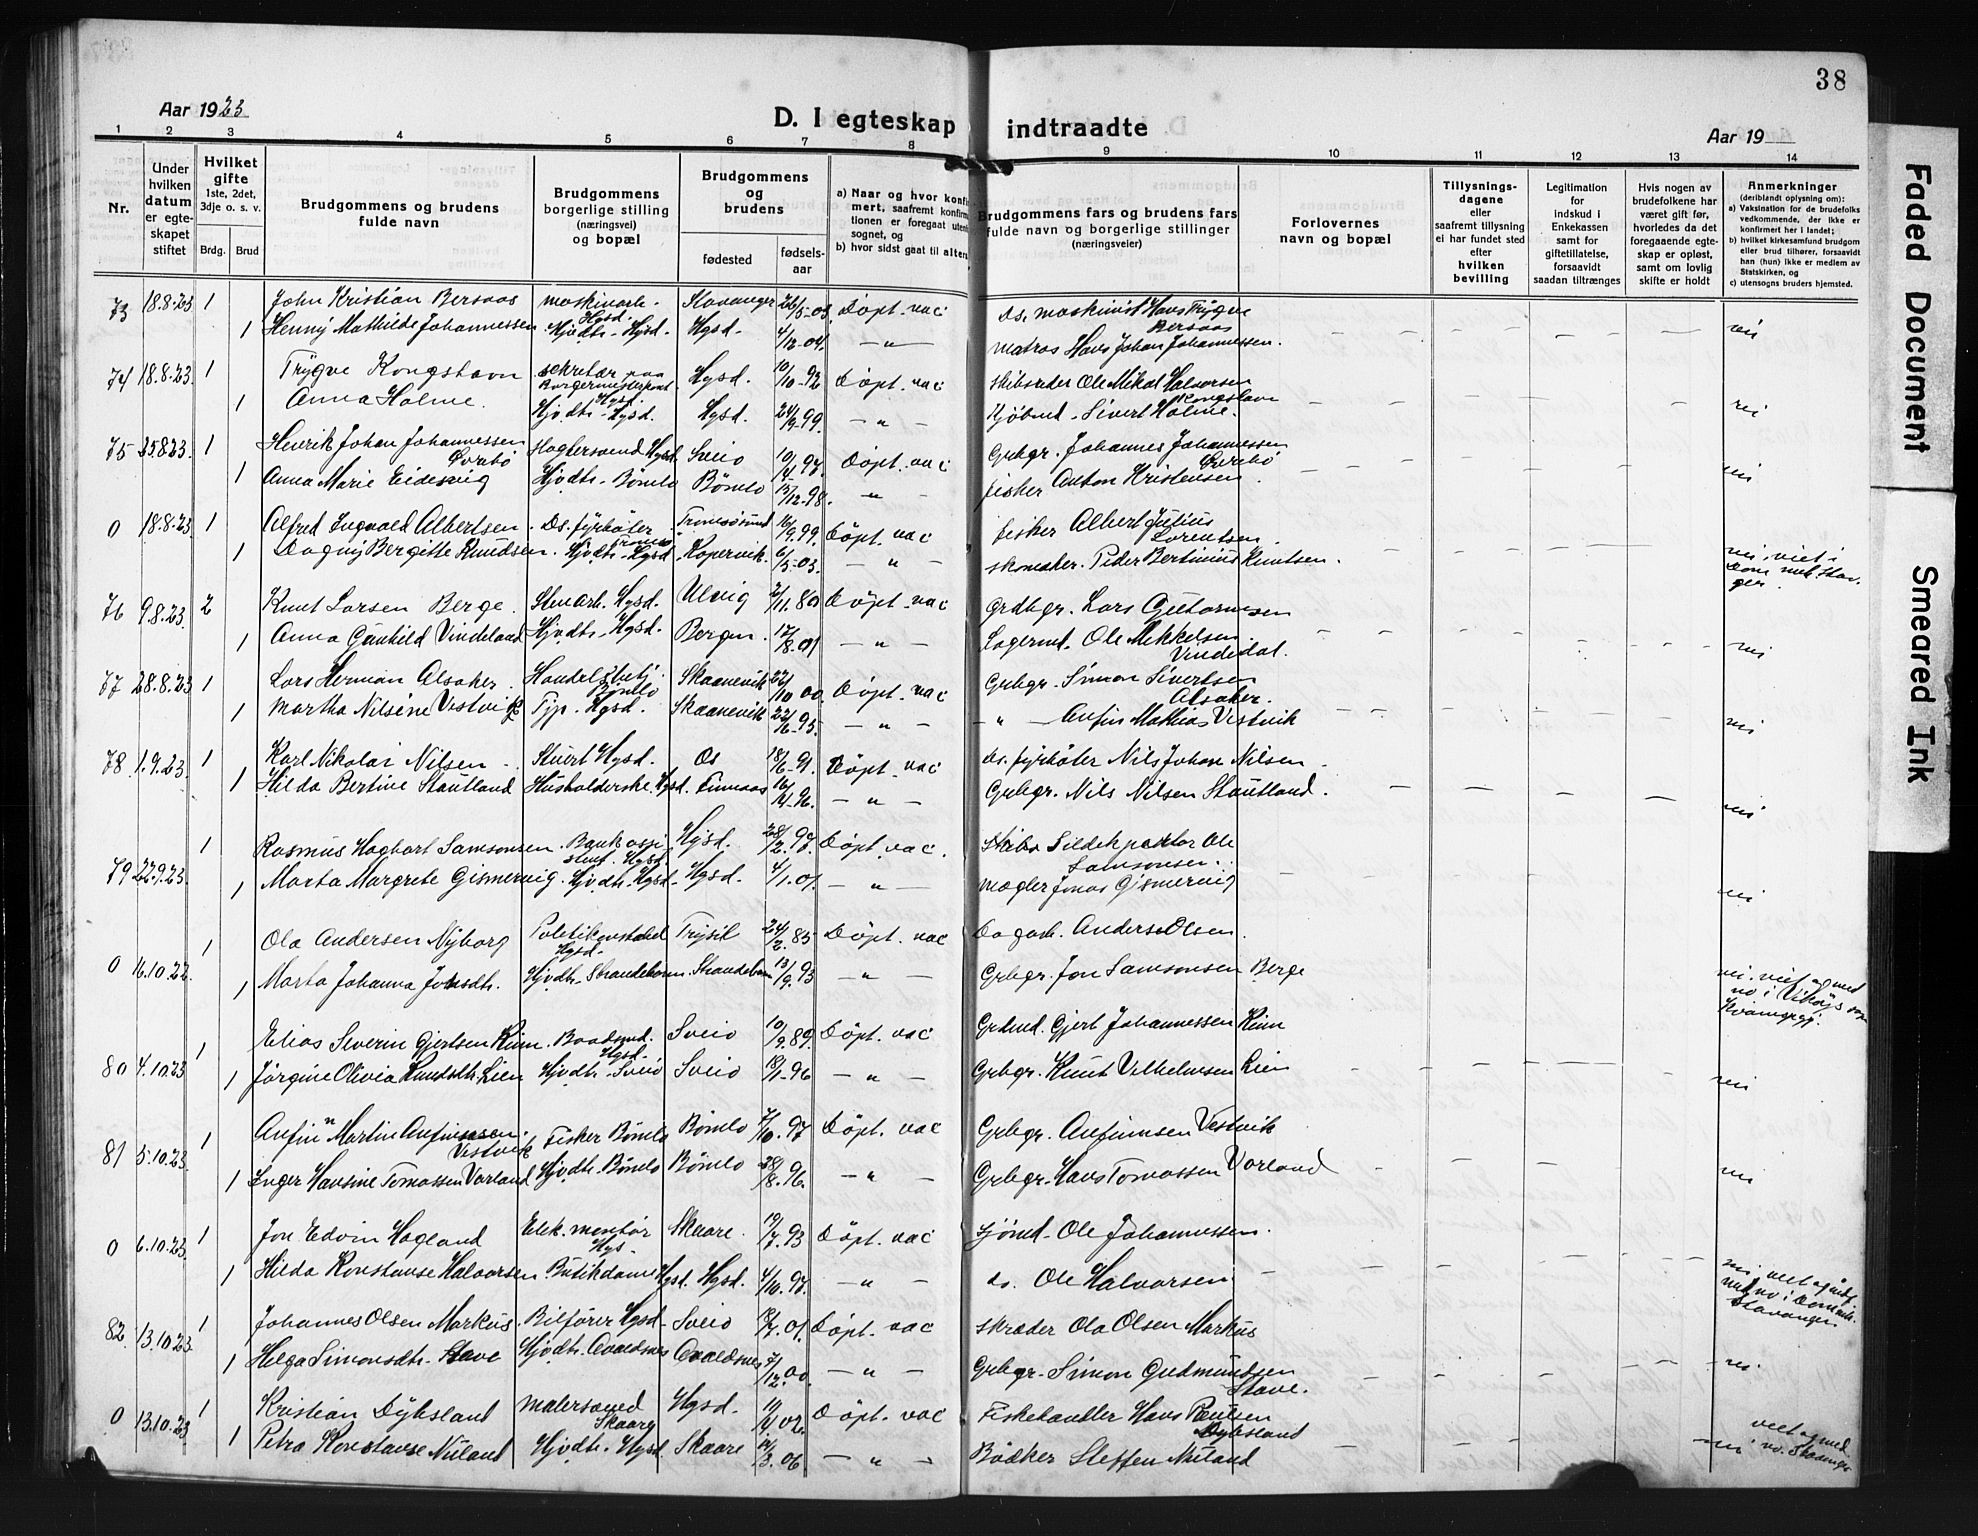 38
Aar 1923
D. I egteskap indtraadte
Aar 19
1 2 3 4 5 6 7 8 9 10 11 12 13 14
Nr.
Under hvilken datum er egteskapet stiftet
Hvilket gifte 1ste, 2det, 3dje o. s. v.
Brdg. Brud
Brudgommens og brudens fulde navn
Brudgommens borgerlige stilling (næringsvei) og bopæl
Brudgommens og brudens
fødested
fødselsaar
a) Naar og hvor konfirmert, saafremt konfirmationen er foregaat utensognet, og
b) hvor sidst gaat til alters
Brudgommens fars og brudens fars fulde navn og borgerlige stillinger (næringsveier)
Forlovernes navn og bopæl
Tillysningsdagene eller saafremt tillysning ei har fundet sted efter hvilken bevilling
Legitimation for indskud i Enkekassen samt for giftetillatelse, forsaavidt saadan tiltrænges
Hvis nogen av brudefolkene har været gift før, hvorledes da det foregaaende egteskap er opløst, samt om lovlig skifte er holdt
Anmerkninger (deriblandt oplysning om):
a) Vaksination for de brudefolks vedkommende, der ikke er konfirmert her i landet;
b) hvilket kirkesamfund brudgom eller brud tilhører, forsaavidt han (hun) ikke er medlem av Statskirken, og
c) utensogns bruders hjemsted.
73 18.8.23 1 John Kristian Bersaas maskinarb. Hgsd. Stavanger 26/5-03 Døpt. vac ds. maskinist Hans Trygve Bersaas
1 Henny Mathilde Johannessen Hjvdtr. Hgsd. Hgsd. 4/12-04. — " — matros Hans Johan Johannessen. nei
74 18.8.23 1 Trygve Kongshavn sekretær paa Borgermesterkont. Hgsd. Hgsd. 10/10-92 Døpt. vac skibsreder Ole Mikal Halvorsen Kongshavn
1 Anna Holme. Hjvdtr. Hgsd. Hgsd. 24/9-99. — " — Kjøbmd. Sivert Holme. nei
75 25.8.23. 1 Henrik Johan Johannessen Øvrebø Slagtersvend Hgsd. Sveio 10/4-97. Døpt. vac Grbgr. Johannes Johannessen Øvrebø
1 Anna Marie Eidesvig Hjvdtr. Bömlo Bömlo 13/12-98. — " — fisker Anton Kristensen nei
0 18.8.23. 1 Alfred Ingvald Albertsen. Ds. fyrbøter Tromsø Tromsøsund 16/9.99. Døpt. vac fisker Albert Julius Lorentsen.
1 Dagny Bergitte Knudsen. Hjvdtr. Hgsd. Kopervik. 6/5-03. — " — skomaker. Peder Bertinius Knutsen. nei, viet i
76 9.8.23. 2 Knut Larsen Berge. Stenarb. Hgsd. Ulvig 2/11.80 Døpt. vac Grdbgr. Lars Guttormsen
1 Anna Gunhild Vindeland Hjvdtr. Hgsd. Bergen. 17/8.01 — " — Lagermd. Ole Mikkelsen Vindedal. nei
77 28.8.23 1 Lars Herman Alsaker. Handelsbetj. Bömlo Skaanevik 22/10 00. Døpt. vac Grbgr. Simon Sivertsen Alsaker.
1 Martha Nilsine Vestvik Typ. Hgsd. Skaanevik 22/6-95. — " — — " — Anfin Mathias Vestvik nei
78 1.9.23. 1 Karl Nikolai Nilsen Stuert Hgsd. Os 18/6-91. Døpt. vac ds. fyrbøter Nils Johan Nilsen
1 Hilda Bertine Stautland Husholderske. Hgsd. Finnaas 16/4-96. — " — Grbgr. Nils Nilsen Stautland. nei
79 22.9.23. 1 Rasmus Hagbart Samsonsen. Bankassistent. Hgsd. Hgsd. 28/2.97. Døpt. vac. Sildekspartør Ole Samsonsen.
1 Marta Margrete Gismervig. Hjvdtr. Hgsd. Hgsd. 4/1.01. — " — mægler Jonas Gismervig nei
0 16.10.22. 1 Ola Andersen Nyborg Politikonstabel Hgsd. Trysil 24/2.85 Døpt. vac Dagarb. Anders Olsen.
1 Marta Johanna Jonsdtr. Hjvdtr. Strandebarm. Strandebarm 13/9.93 — " — Grbgr. Jon Samsonsen Berge
80 4.10.23 1 Elias Severin Gjertsen Rinn. Baadsmd. Hgsd. Sveio 10/9.89. Døpt. vac Grdmd. Gjert Johannessen Rinn
1 Jørgine Olivia Knudsdtr. Lien Hjvdtr. Sveio Sveio 18/1-96 — " — Grbgr. Knut Vilhelmsen Lien nei
81 5.10.23. 1 Anfinn Martin Anfinnsen. Vestvik Fisker Bömlo Bömlo 7/10.97 Døpt. vac Grbgr. Anfinnsen Vestvik
1 Inger Hansine Tomassen Vorland Hjvdtr. Bömlo Bömlo 28/8.96. — " — Grbgr. Hans Tomassen Vorland nei
0 6.10.23. 1 Jon Edvin Hagland Elek. montør Hgs. Skaare. 19/7.93 Døpt. vac sjömd. Ole Johannessen.
1 Hilda Konstanse Halvorsen Butikdame Hgsd. Hgsd. 4/10.97. — " — ds. Ole Halvorsen
82. 13.10.23. 1 Johannes Olsen Markus. Bilfører Hgsd. Sveio 12/7.01. Døpt. vac skræder Ola Olsen Markus
1 Helga Simonsdtr. Stave Hjvdtr. Avaldsnes Avaldsnes 7/12.00. — " — Grbgr. Simon Gudmundsen Stave. nei.
0 13.10.23 1 Kristian Dybsland malersvend Skaare Hgsd. 19/4.02. Døpt. vac Fiskehandler Hans Paulsen Dybsland
1 Petra Konstanse Nuland Hjvdtr. Hgsd. Skaare 14/3.06. — " — Bødker Steffen Nuland nei
Faded Document
Smeared Ink